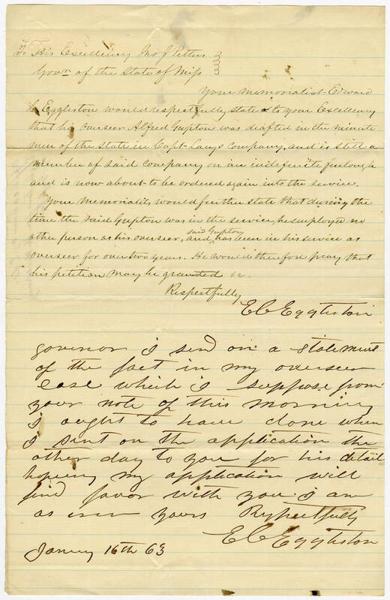 To His Excellency Jno J Pettus
Govr. of the State of Miss
Your Memorialist Edward
C Eggleston would respectfully state to your Excellency
that his overseer Alfred Gupton was drafted in the minute
men of the State in Capt. Lays Company, and is still a
member of said company on an indefinite furlough
and is now about to be ordered again into the service.
Your Memorialist would further state that during the
time the said Gupton was in the service, he employed no
other person as his overseer, and said Gupton has been in his service as
overseer for over two years. He would therefore pray that
his petition may be granted
Respectfully
E C Eggleston
governor I send on a statement
of the fact in my overseer
case which I suppose from
your note of this morning
I ought to have done when
I sent on the application the
other day to you for his detail
hoping my application will
find favor with you I am
as ever yours Respectfully
E C Eggleston
Januy 16th 63